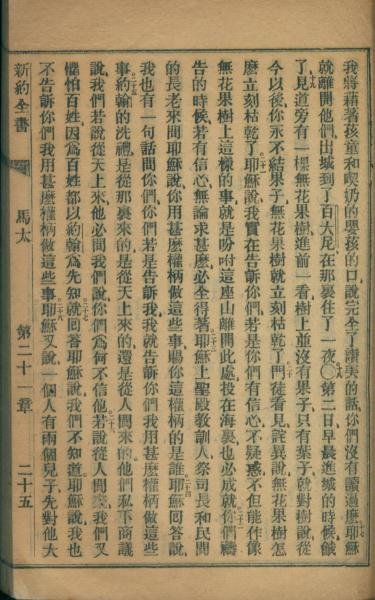 我將藉著孩童和喫奶的嬰孩的口說完全了讚美的話你們沒有讀過麽耶穌
就離開他們出城到了百大尼在那裏住了一夜〇十八第二日早晨進城的時候餓
了十九見道旁有一棵無花果樹進前一看樹上並沒有果子只有葉子就對樹說從
今以後你永不結果子無花果樹就立刻枯乾了二十門徒看見詫異說無花果樹怎
麽立刻枯乾了二十一耶穌說我實在告訴你們若是你們有信心不疑惑不但能作像
無花果樹上這樣的事就是吩咐這座山離開此處投在海裏也必成就二十二你們禱
告的時候若有信心無論求甚麽必全得著二十三耶穌上聖殿教訓人祭司長和民間
的長老來問耶穌說你用甚麽權柄做這些事賜你這權柄的是誰二十四耶穌回答說
我也有一句話問你們你們若是告訴我我就告訴你們我用甚麽權柄做這些
事二十五約翰的洗禮是從那裏來的是從天上來的還是從人間來的他們私下商議
說我們若說從天上來他必問我們說你們爲何不信他二十六若說從人間來我們又
懼怕百姓因爲百姓都以約翰爲先知二十七就回答耶穌說我們不知道耶穌說我也
不告訴你們我用甚麽權柄做這些事二十八耶穌又說一個人有兩個兒子先對他大
新約全書 馬太 第二十一章 二十五